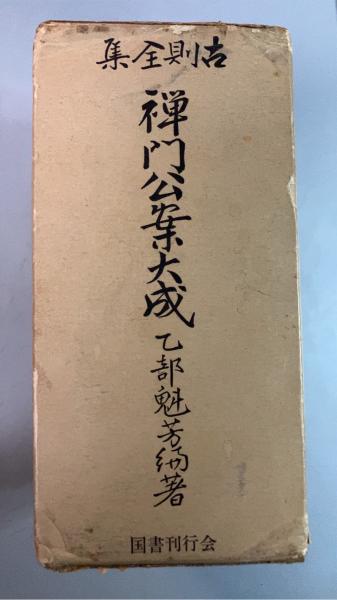 古則全集
禅門公案大成
乙部魁芳編著
国書刊行会